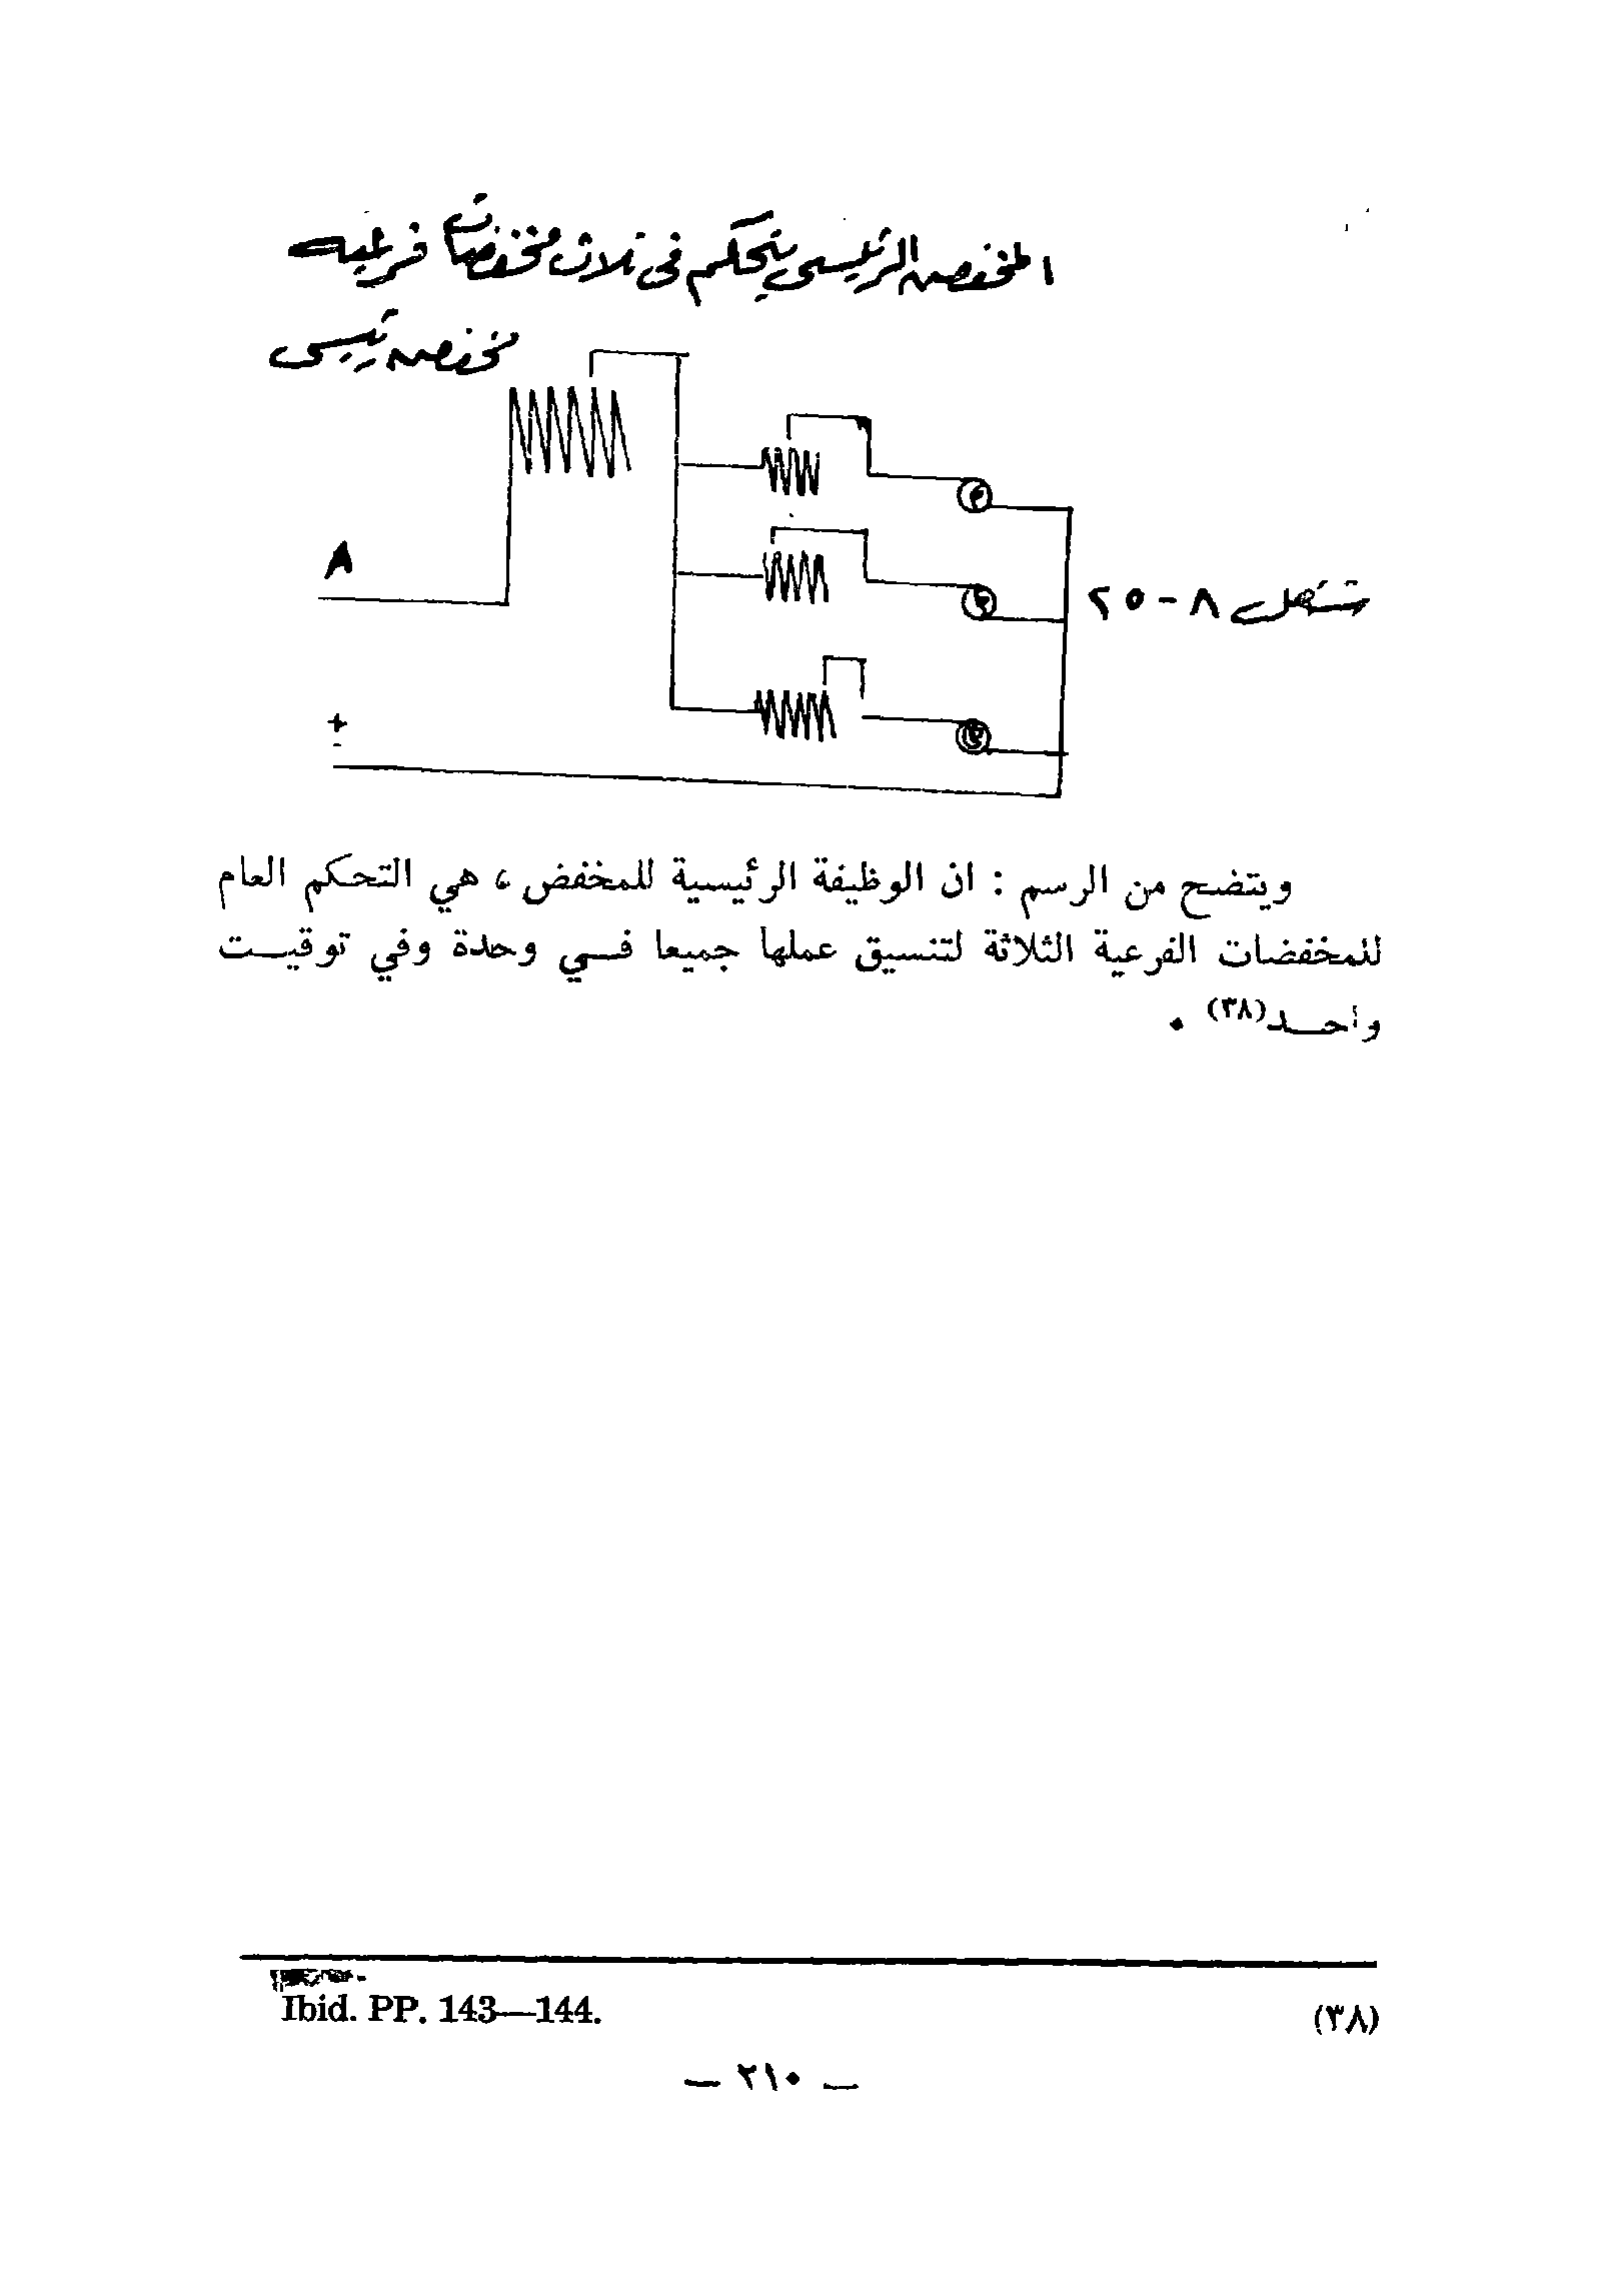 المخفض الرئيسى يتحكم فى ثلاث مخفضات فرعيه
مخفض رئيسى
A
شكل ٨-٢٥
+
-
ويتضح من الرسم : ان الوظيفة الرئيسية للمخفض ، هي التحكم العام
للمخفضات الفرعية الثلاثة لتنسيق عملها جميعا فـــي وحدة وفي توقيـــت
واحـــد(٣٨) .
(٣٨) Ibid. PP. 143—144.
— ٢١٠ —